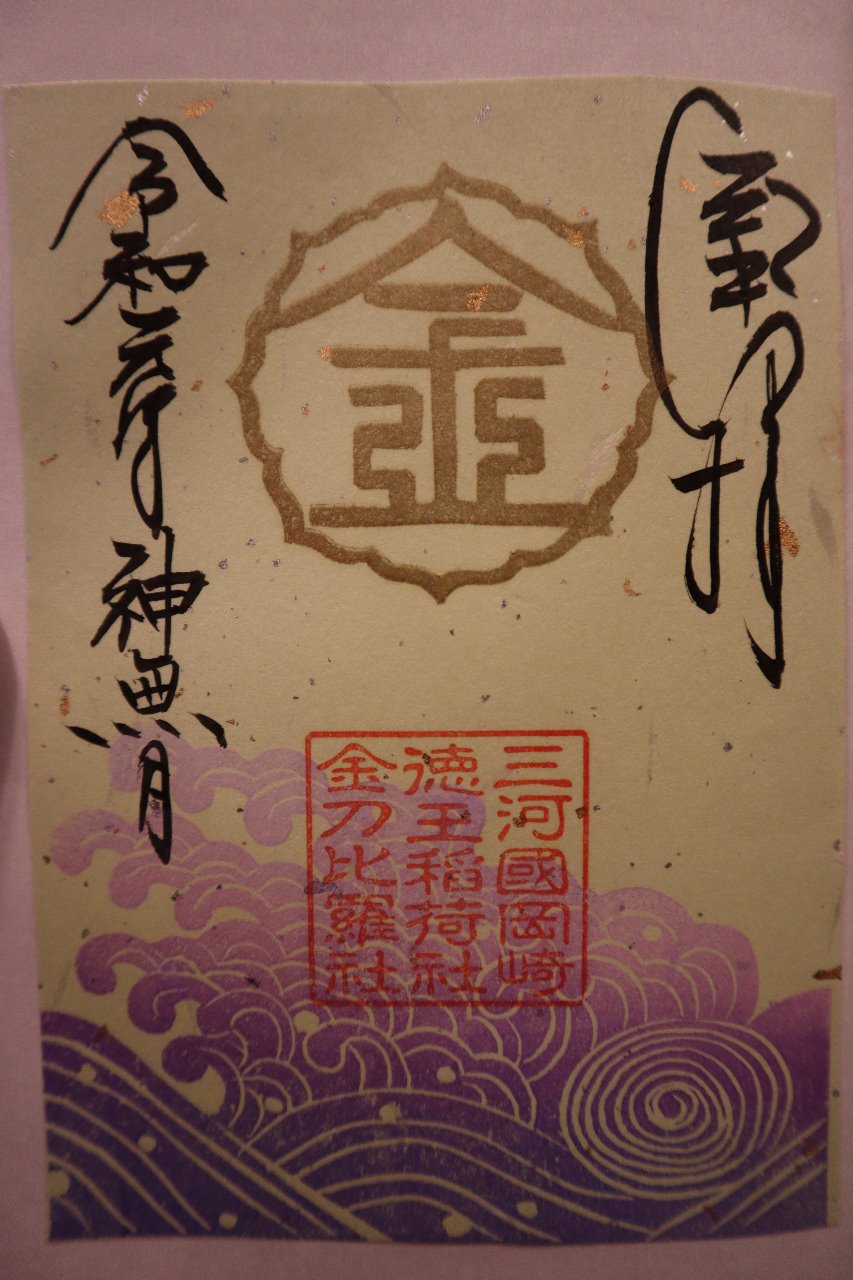 奉拝
金
三河國岡崎
徳王稲荷社
金刀比羅社
令和元年 神無月